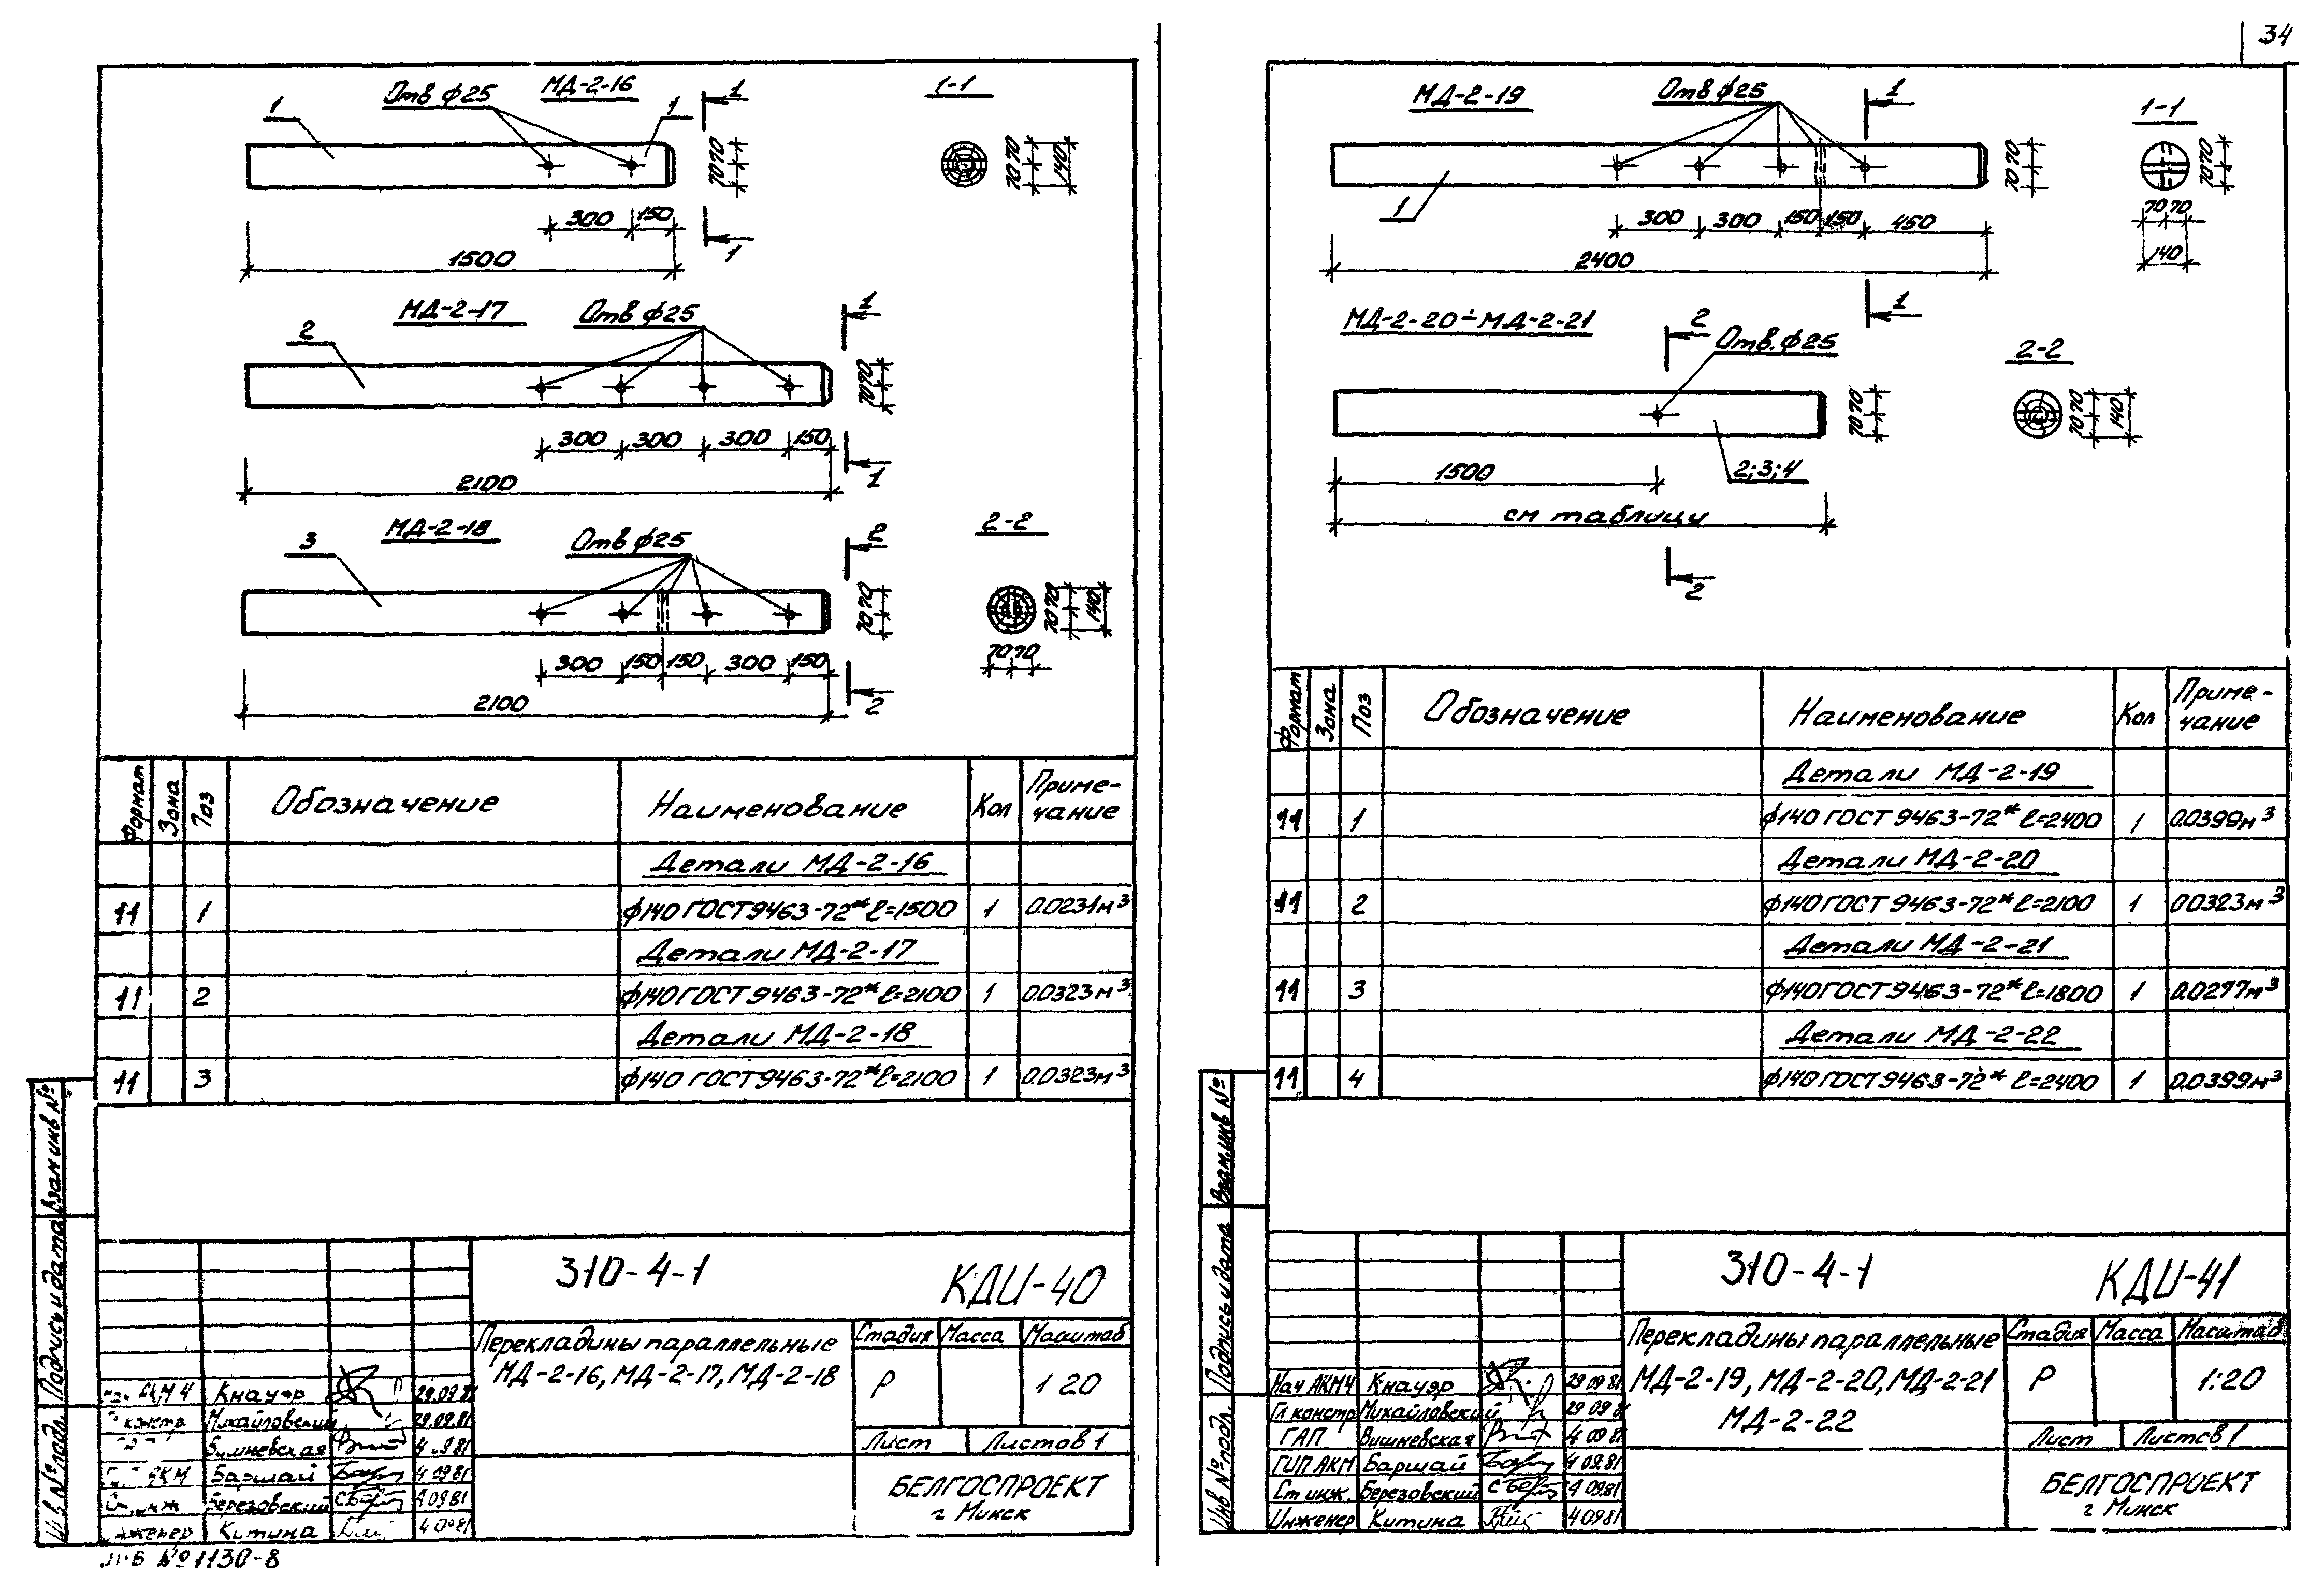 34
МД-2-16
Отв ф25
1
1
1
1-1
70 70
70 70
140
300
150
1
1500
МД-2-17
Отв ф25
1
2
70 70
300
300
300
150
1
2100
МД-2-18
Отв ф25
2
2-2
3
70 70
70 70
140
300
150
150
300
150
70 70
2
2100
Формат
Зона
Поз
Обозначение
Наименование
Кол
Приме-
чание
Детали МД-2-16
11 1 ф140 ГОСТ 9463-72* ℓ=1500 1 0.0231м³
Детали МД-2-17
11 2 ф140 ГОСТ 9463-72* ℓ=2100 1 0.0323м³
Детали МД-2-18
11 3 ф140 ГОСТ 9463-72* ℓ=2100 1 0.0323м³
Взам инв №
Подпись и дата
Инв № подл.
310-4-1
КДИ-40
Перекладины параллельные
МД-2-16, МД-2-17, МД-2-18
Стадия Масса Масштаб
Р 1 20
Лист Листов 1
БЕЛГОСПРОЕКТ
г Минск
АКМ 4 Кнауэр 29.09.81
констр Михайловский 29.09.81
Вишневская 4 09 81
АКМ Баршай 4 09 81
Ст. инж Березовский 4 09 81
Инженер Китина 4 09 81
№ 1130-8
МД-2-19
Отв ф25
1
1-1
70 70
70 70
1
300
300
150
150
450
70 70
140
2400
1
МД-2-20÷МД-2-21
2
Отв. ф25
2-2
70 70
70 70
140
1500
2;3;4
см таблицу
2
Формат
Зона
Поз
Обозначение
Наименование
Кол
Приме-
чание
Детали МД-2-19
11 1 ф140 ГОСТ 9463-72* ℓ=2400 1 0.0399м³
Детали МД-2-20
11 2 ф140 ГОСТ 9463-72* ℓ=2100 1 0.0323м³
Детали МД-2-21
11 3 ф140 ГОСТ 9463-72* ℓ=1800 1 0.0277м³
Детали МД-2-22
11 4 ф140 ГОСТ 9463-72* ℓ=2400 1 0.0399м³
Взам. инв №
Подпись и дата
Инв № подл.
310-4-1
КДИ-41
Перекладины параллельные
МД-2-19, МД-2-20, МД-2-21
МД-2-22
Стадия Масса Масштаб
Р 1:20
Лист Листов 1
БЕЛГОСПРОЕКТ
г Минск
Нач АКМ4 Кнауэр 29 09 81
Гл констр Михайловский 29 09 81
ГАП Вишневская 4 09 81
ГИП АКМ Баршай 4 09.81
Ст инж. Березовский 4 09.81
Инженер Китина 4 09 81